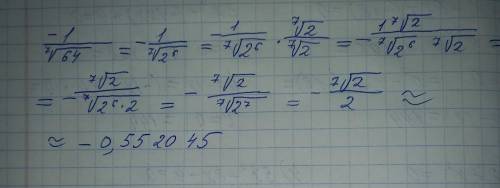 -1/⁷√64 = -1/⁷√2⁶ = -1/⁷√2⁶ · ⁷√2/⁷√2 = -1⁷√2/⁷√2⁶ ⁷√2 =
= -⁷√2/⁷√2⁶·2 = -⁷√2/⁷√2⁷ = -⁷√2/2 ≈
≈ -0,552045